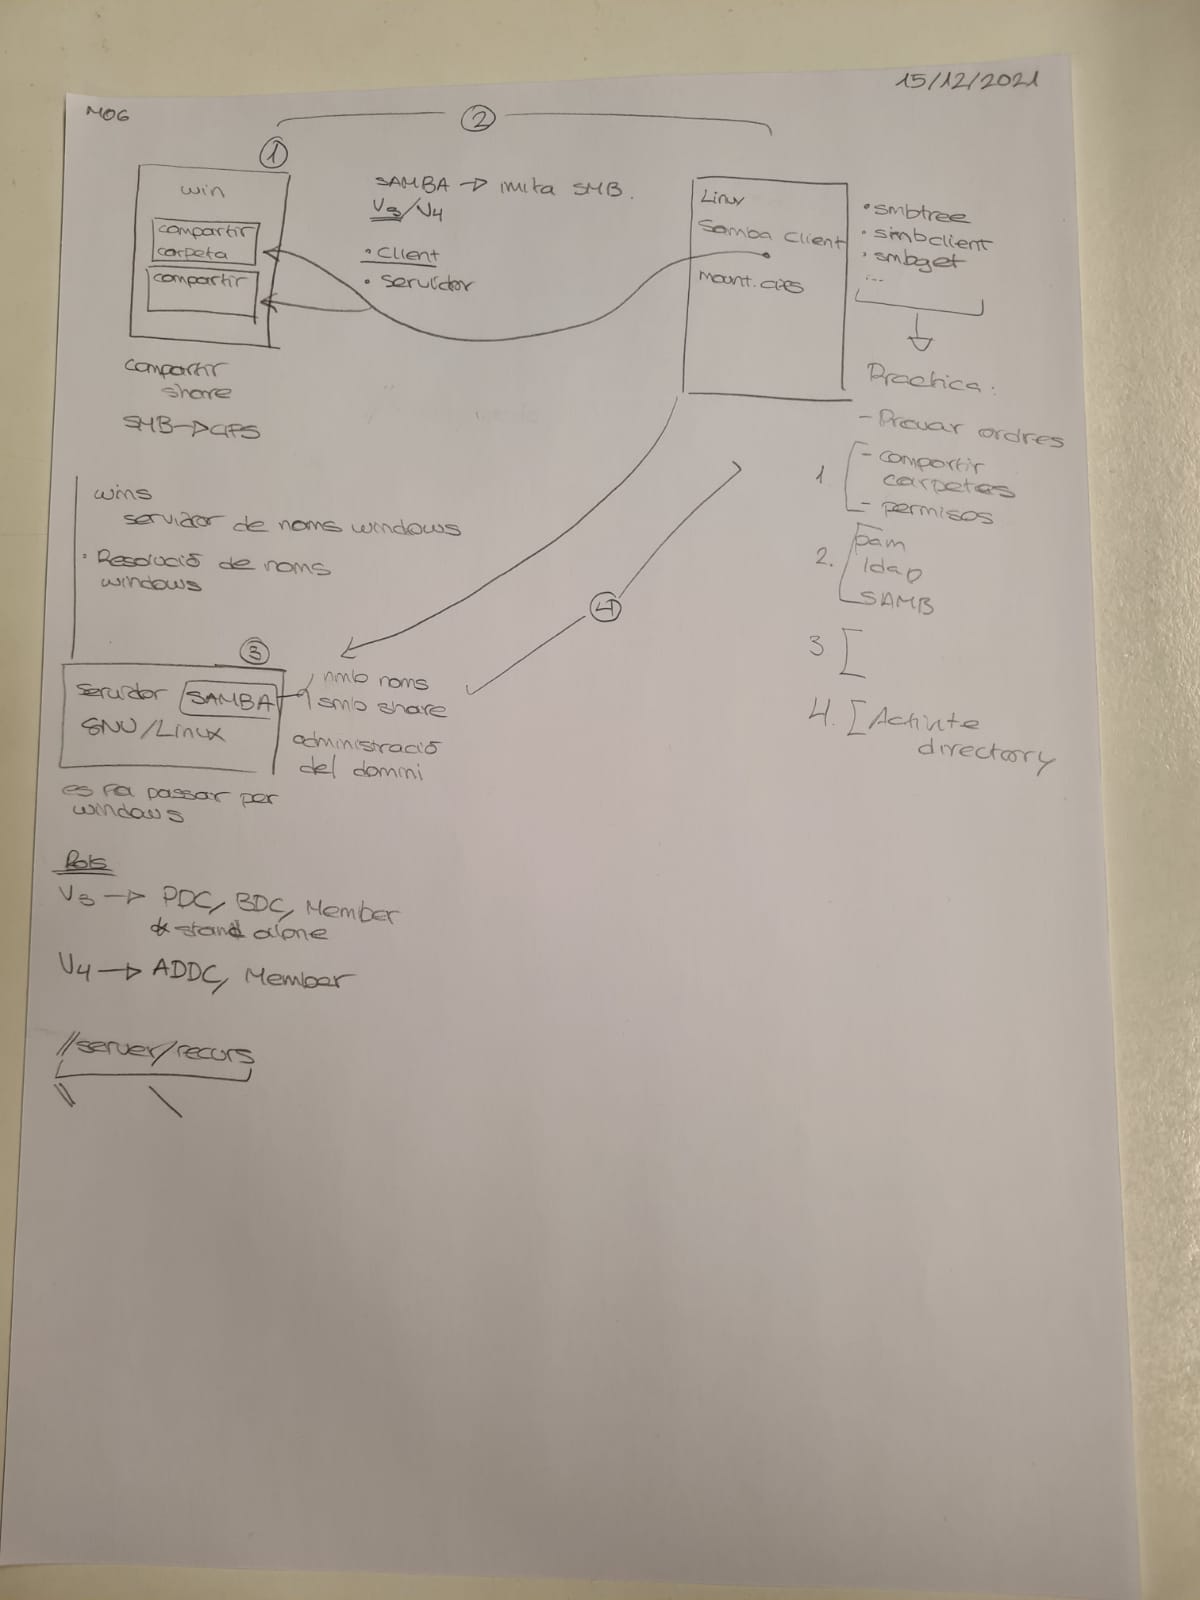 15/12/2021
M06
2
1
win
compartir
carpeta
compartir
compartir
share
SMB→CIFS
SAMBA → imita SMB.
V3/V4
• client
• servidor
Linux
Samba Client
mount.cifs
• smbtree
• smbclient
• smbget
...
Practica:
- Provar ordres
1
- compartir
carpetes
- permisos
2.
pam
ldap
SAMB
3
4.
Active
directory
wins
servidor de noms windows
• Resolució de noms
windows
4
3
servidor SAMBA
GNU/Linux
nmb noms
smb share
administració
del domini
es fa passar per
windows
Rols
V3 → PDC, BDC, Member
* stand alone
V4 → ADDC, Member
//server/recurs
\\ \